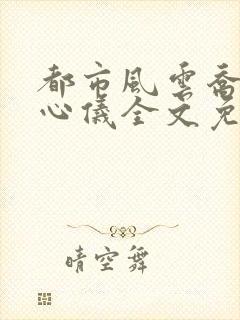 都市風雲喬
心儀全文免
晴空舞